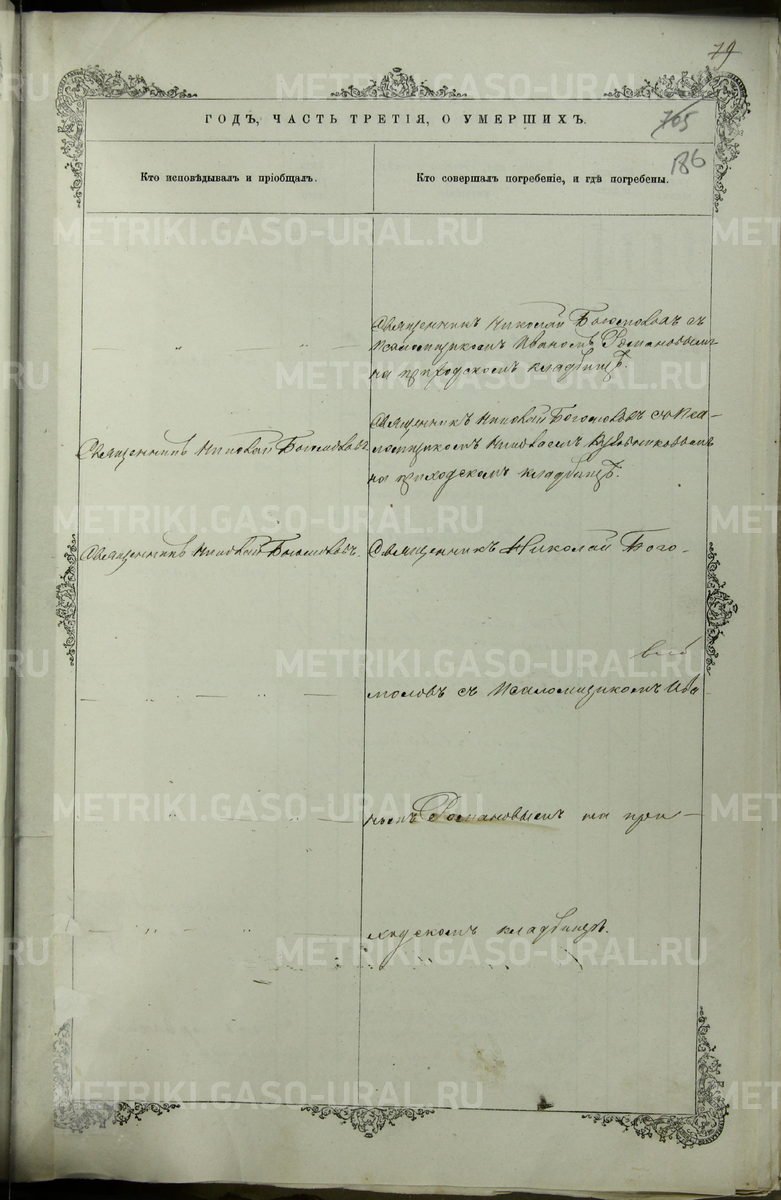 79
765
ГОДЪ, ЧАСТЬ ТРЕТІЯ, О УМЕРШИХЪ.
186
Кто исповѣдывалъ и пріобщалъ.
Кто совершалъ погребеніе, и гдѣ погребены.
Священникъ Николай Богомоловъ съ
Псаломщикомъ Иваномъ Романовымъ
на приходскомъ кладбищѣ.
Священникъ Николай Богомоловъ
Священникъ Николай Богомоловъ со Пса-
ломщикомъ Николаемъ
на приходскомъ кладбищѣ.
Священникъ Николай Богомоловъ.
Священникъ Николай Бого-
моловъ съ Псаломщикомъ Ива-
номъ Романовымъ на при-
ходскомъ кладбищѣ.
METRIKI.GASO-URAL.RU